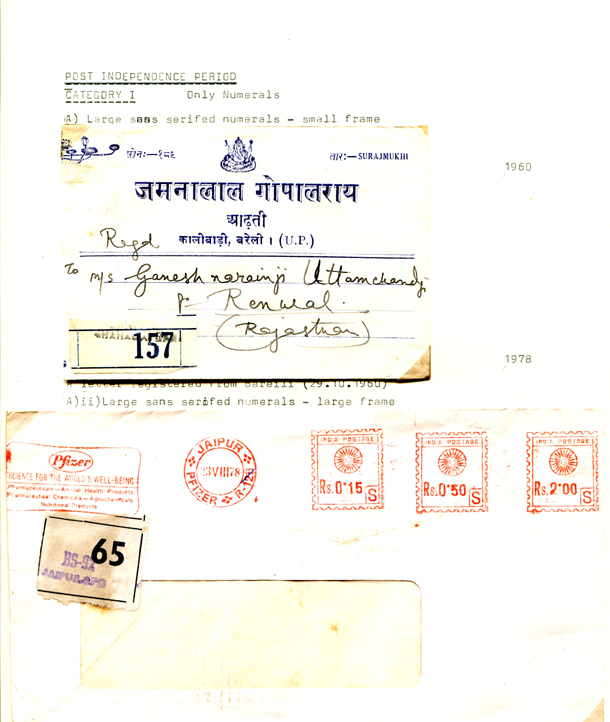 POST INDEPENDENCE PERIOD
CATEGORY I Only Numerals
A) Large sans serifed numerals - small frame
1960
फ़ोनः—१८६ तारः—SURAJMUKHI
जमनालाल गोपालराय
आढ़ती
कालीबाड़ी, बरेली । (U.P.)
Regd
To M/s Ganesh narainji Uttamchandji
Renwal
(Rajasthan)
157
1978
A letter registered from Bareili (29.10.1960)
A)ii)Large sans serifed numerals - large frame
Pfizer
SCIENCE FOR THE WORLD'S WELL-BEING
Pharmaceuticals — Animal Health Products
Pharmaceutical Chemicals — Agrochemicals
Nutritional Products
JAIPUR
23 VIII 78
PFIZER R-128
INDIA POSTAGE
Rs.0·15 S
INDIA POSTAGE
Rs.0·50 S
INDIA POSTAGE
Rs.2·00 S
65
BS-92
JAIPUR.GPO